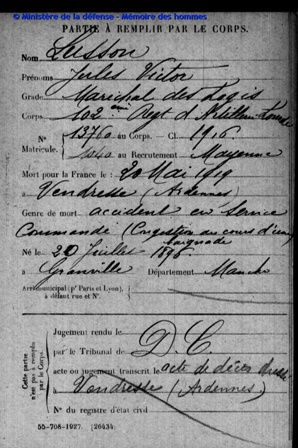 © Ministère de la défense - Mémoire des hommes
PARTIE À REMPLIR PAR LE CORPS.
Nom Lusson
Prénoms Jules Victor
Grade Maréchal des Logis
Corps 102eme Regt d'Artillerie Lourde
N° 13760 au Corps. — Cl. 1916
Matricule. 1040 au Recrutement Mayenne
Mort pour la France le 20 Mai 1919
à Vendresse (Ardennes)
Genre de mort accident en Service
Commandé (Congestion au cours d'une
baignade
Né le 20 Juillet 1896
à Granville Département Manche
Arrt municipal (pr Paris et Lyon),
à défaut rue et N°
Cette partie
n'est pas à remplir
par le Corps.
Jugement rendu le
par le Tribunal de D. C.
acte ou jugement transcrit le acte de décès dressé
à Vendresse (Ardennes)
N° du registre d'état civil
55-708-1927. [26434.]